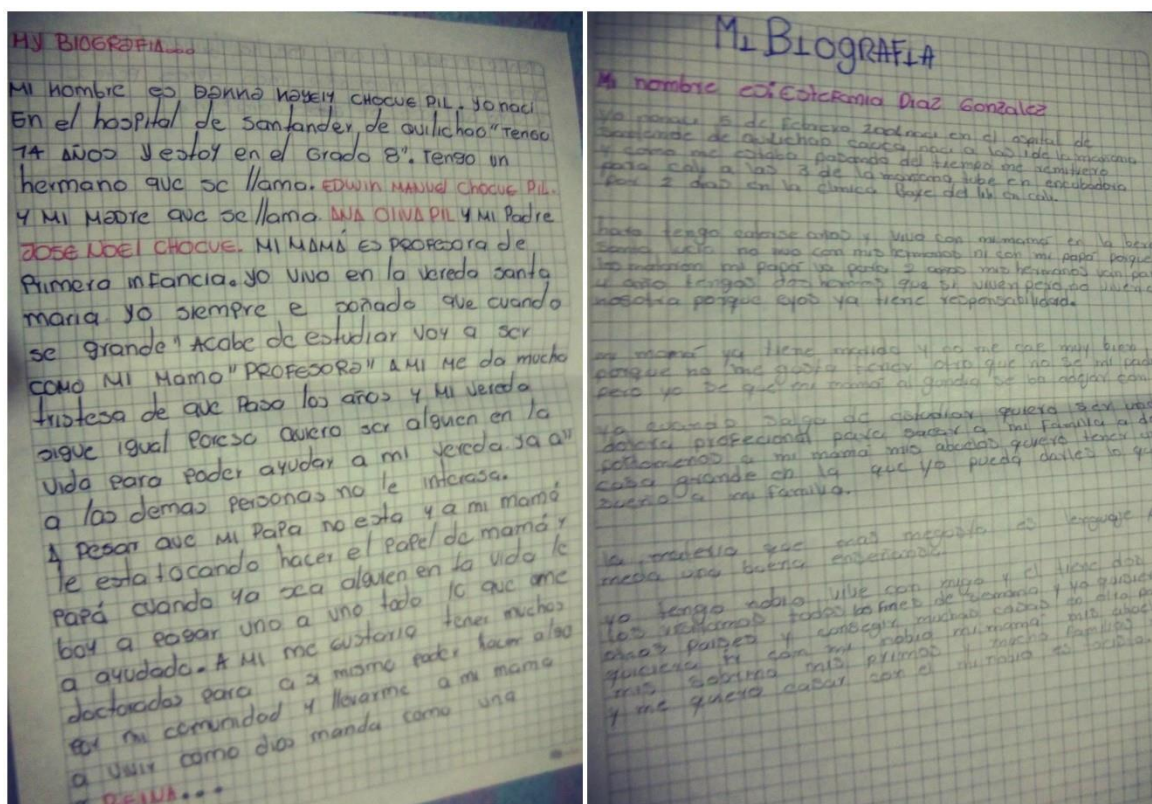 MY BIOGRAFIA....
MI nombre es Danna nayely CHOCUE PIL. yo naci
En el hospital de santander, de quilichao" Tengo
14 AÑOS y estoy en el Grado 8°. Tengo un
hermano que se llama. EDWIN MANUEL CHOCUE PIL.
Y MI MADRE que se llama. ANA OLIVA PIL Y MI Padre
JOSE NOEL CHOCUE. MI MAMÁ ES PROFESORA de
Primera infancia. yo vivo en la vereda santa
maria yo siempre e soñado que cuando
se grande" Acabe de estudiar voy a ser
COMO MI MAMA "PROFESORA" A MI ME da mucha
tristesa de que Pasa los años y MI Vereda
sigue igual Poreso Quiero ser alguien en la
vida Para Poder ayudar a mi vereda. ya a"
a las demas Personas no le interasa.
A Pesar que MI PAPA no esta y a mi mamá
le esta tocando hacer el Papel de mamá y
PaPá cuando ya sea alguien en la vida le
boy a Pagar uno a uno todo lo que ame
a ayudado. A MI me gustaria tener muchos
doctorados para a si mismo Poder hacer algo
por mi comunidad y llevarme a mi mama
a vivir como dios manda como una
REINA...
MI BIOGRAFIA
Mi nombre es: Estefania Diaz Gonzalez
yo 5 de febrero en el ospital de
de quilichao cauca naci a las 1 de la mañana
y como me estaba pasando del tiempo me remitiero
para cali a las 3 de la mañana tube en encubadora
por 2 dias en la clinica Baye del lili en cali.
tengo años y vivo con mi mamá en la
no vivo con mis hermanos ni con mi papá porque
los mataron mi papá va para 2 años mis hermanos van
y tengas dos que si viven pero no viven
nosotra porque eyos ya tiene responsabilidad.
mi mamá ya tiene marido y no me cae muy bien
porque no me gusta tener otro que no se mi
pero yo se que mi mamá algun dia se ba
ya cuando salga de estudiar quiero ser una
profecional para sacar a mi familia a
a mi mamá mis abuelos quiero tener
casa grande en la que yo pueda darles lo
a mi familia.
la materia que mas megusta es lenguaje
una buena enseñansa.
yo tengo nobio vive con migo y el tiene dos
los visitamos todos los fines de semana y yo
otros paises y conseguir muchas casas en otro
quiciera ir con mi nobio mi mamá mis
mis sobrino mis primos y mucho familias
y me quero casar con el mi nobio es